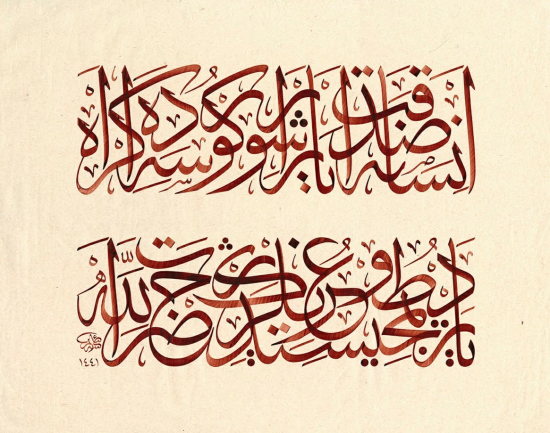 انسانه صداقت ياراشور كورسه ده اكراه
ياردیمجيسيدر طوغريلرڭ حضرت الله
١٤٤١